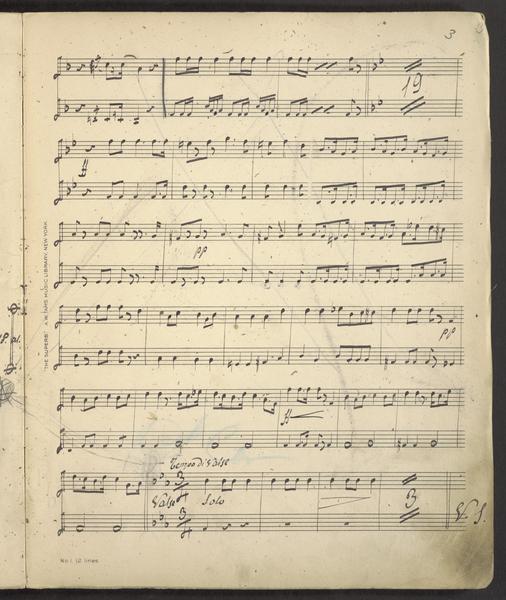 3
19
ff
pp
"THE SUPERB" A.W. TAMS MUSIC LIBRARY, NEW YORK
pp
ff
Tempo di Valse
3
4
Valse Solo
3
4
3
V. S.
No. 1, 12 lines